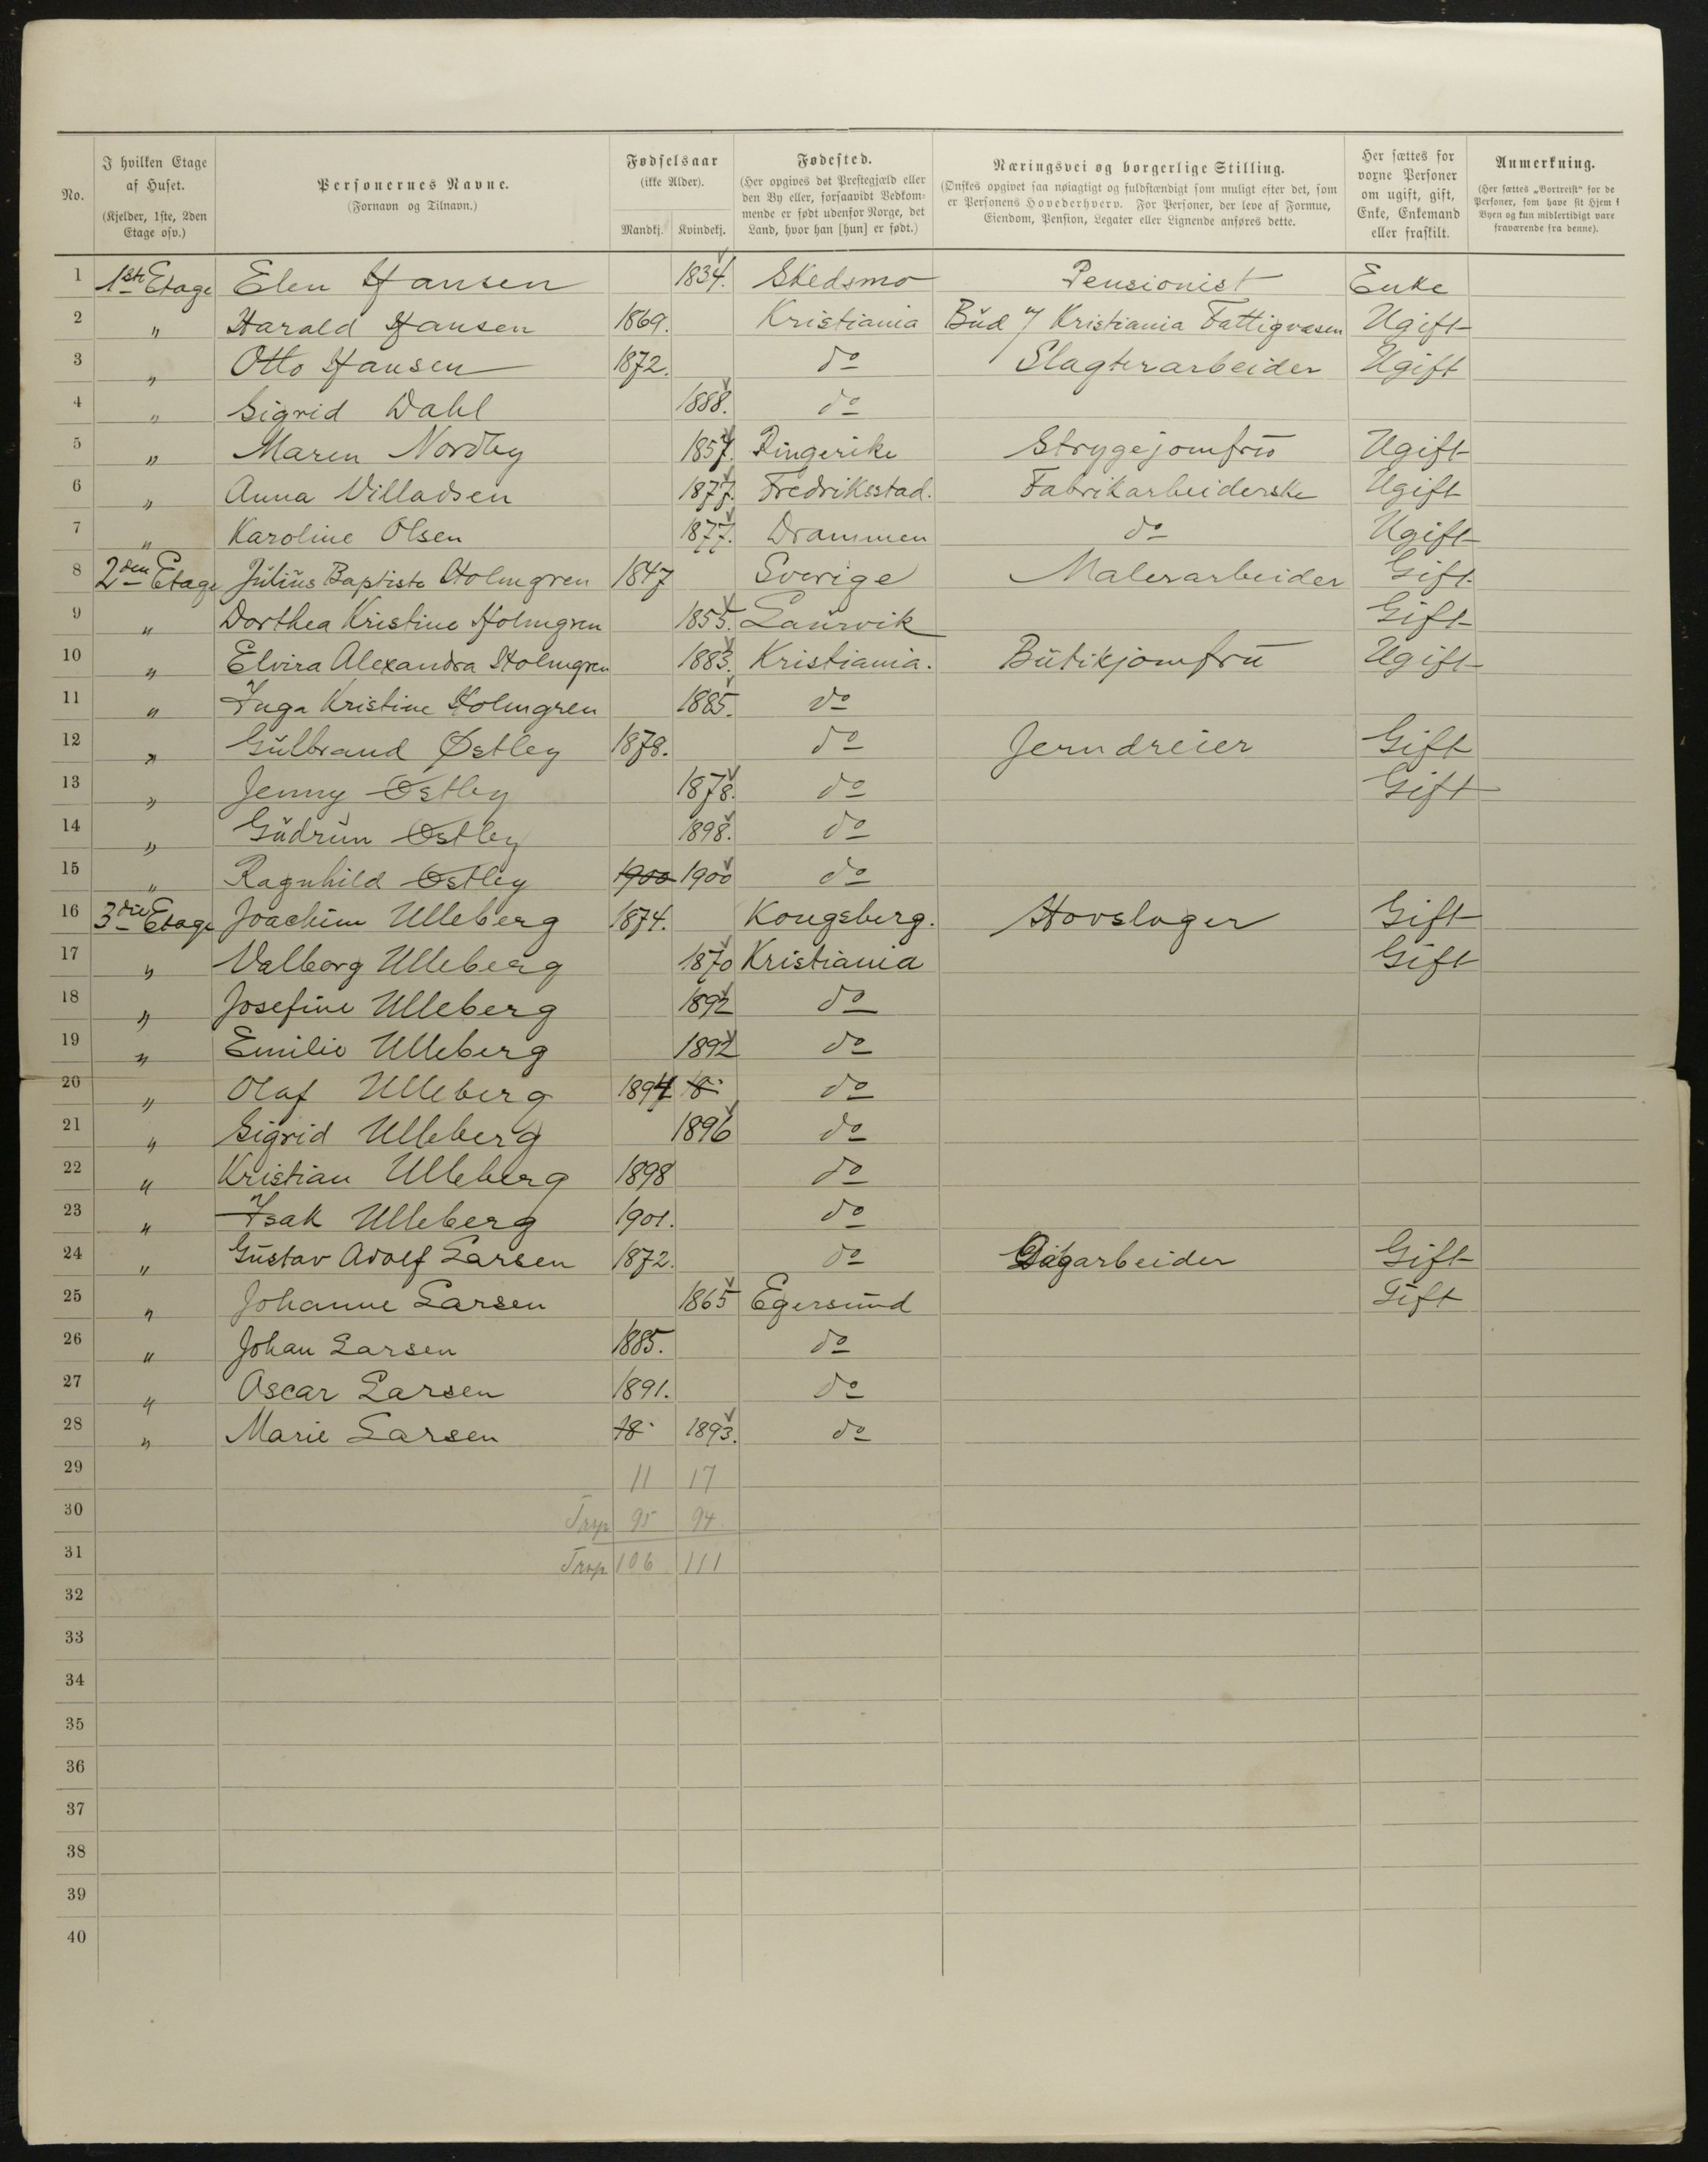 No. | I hvilken Etage af Huset. (Kjelder, 1ste, 2den Etage osv.) | Personernes Navne. (Fornavn og Tilnavn.) | Fødselsaar (ikke Alder). Mandkj. Kvindekj. | Fødested. (Her opgives det Prestegjæld eller den By eller, forsaavidt Vedkommende er født udenfor Norge, det Land, hvor han [hun] er født.) | Næringsvei og borgerlige Stilling. (Ønskes opgivet saa nøiagtigt og fuldstændigt som muligt efter det, som er Personens Hovederhverv. For Personer, der leve af Formue, Eiendom, Pension, Legater eller Lignende anføres dette. | Her sættes for voxne Personer om ugift, gift, Enke, Enkemand eller fraskilt. | Anmerkning. (Her sættes „Bortreist“ for de Personer, som have sit Hjem i Byen og kun midlertidigt vare fraværende fra denne).
1 1ste Etage Elen Hansen 1834. Skedsmo Pensionist Enke
2 " Harald Hansen 1869. Kristiania Bud v/ Kristiania Fattigvæsen Ugift
3 " Otto Hansen 1872. do Slagterarbeider Ugift
4 " Sigrid Dahl 1888. do
5 " Maren Nordby 1857. Ringerike Strygejomfru Ugift
6 " Anna Villadsen 1877. Fredriksstad. Fabrikarbeiderske Ugift
7 " Karoline Olsen 1877. Drammen do Ugift
8 2den Etage Julius Baptiste Holmgren 1847 Sverige Malerarbeider Gift
9 " Dorthea Kristine Holmgren 1855. Laurvik Gift
10 " Elvira Alexandra Holmgren 1883. Kristiania. Butikjomfru Ugift
11 " Inga Kristine Holmgren 1885. do
12 " Gulbrand Østby 1878. do Jerndreier Gift
13 " Jenny Østby 1878. do Gift
14 " Gudrun Østby 1898. do
15 " Ragnhild Østby 1900 1900 do
16 3die Etage Joachim Ulleberg 1874. Kongsberg. Hovslager Gift
17 " Valborg Ulleberg 1870 Kristiania Gift
18 " Josefine Ulleberg 1892 do
19 " Emilie Ulleberg 1892 do
20 " Olaf Ulleberg 1894 18 do
21 " Sigrid Ulleberg 1896 do
22 " Kristian Ulleberg 1898 do
23 " Isak Ulleberg 1901. do
24 " Gustav Adolf Larsen 1872. do Dagarbeider Gift
25 " Johanne Larsen 1865 Egersund Gift
26 " Johan Larsen 1885. do
27 " Oscar Larsen 1891. do
28 " Marie Larsen 18 1893. do
29 11 17
30 Trsp 95 94
31 Trsp 106 111
32
33
34
35
36
37
38
39
40